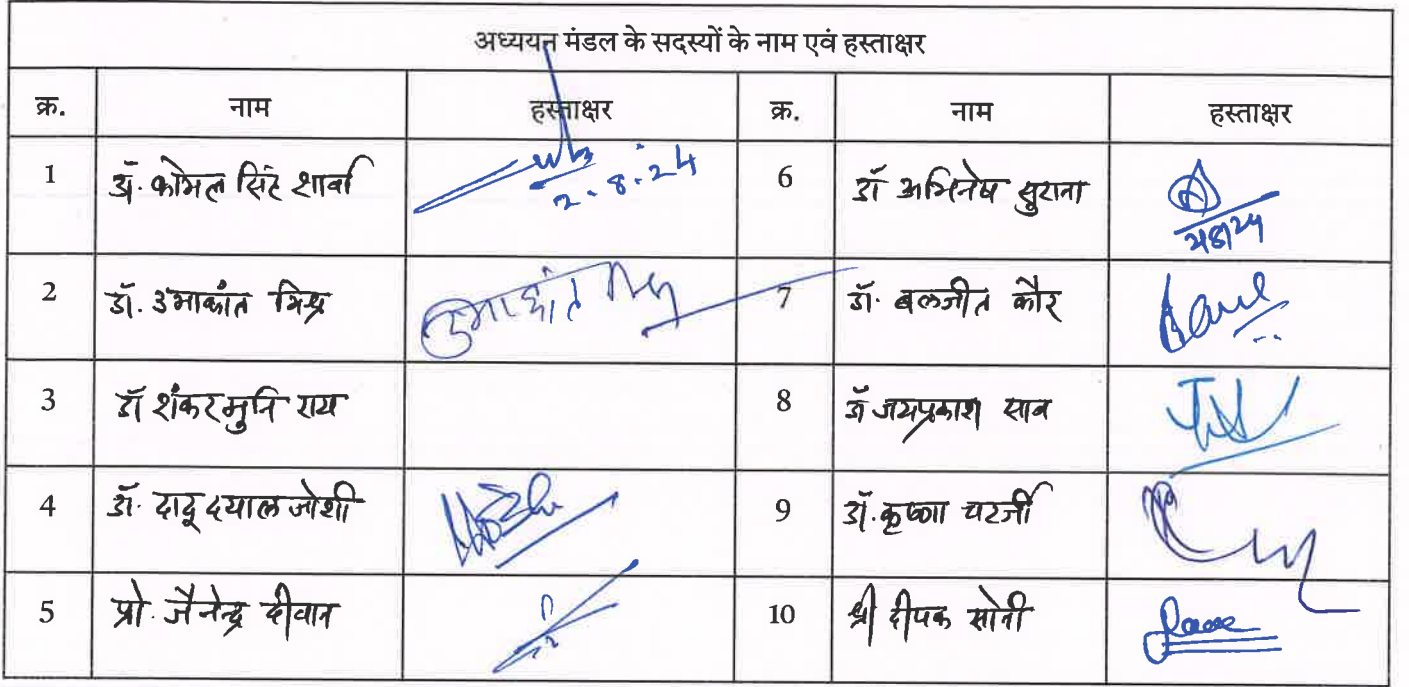 अध्ययन मंडल के सदस्यों के नाम एवं हस्ताक्षर
क्र. नाम हस्ताक्षर क्र. नाम हस्ताक्षर
1 डॉ. कोमल सिंह शार्वा 2.8.24 6 डॉ अभिनेष सुराना
2 डॉ. उमाकांत मिश्र उमाकांत 7 डॉ. बलजीत कौर
3 डॉ शंकर मुनि राय 8 डॉ जयप्रकाश साव
4 डॉ. दादू दयाल जोशी 9 डॉ. कृष्णा चटर्जी
5 प्रो. जैनेन्द्र दीवान 10 श्री दीपक सोनी